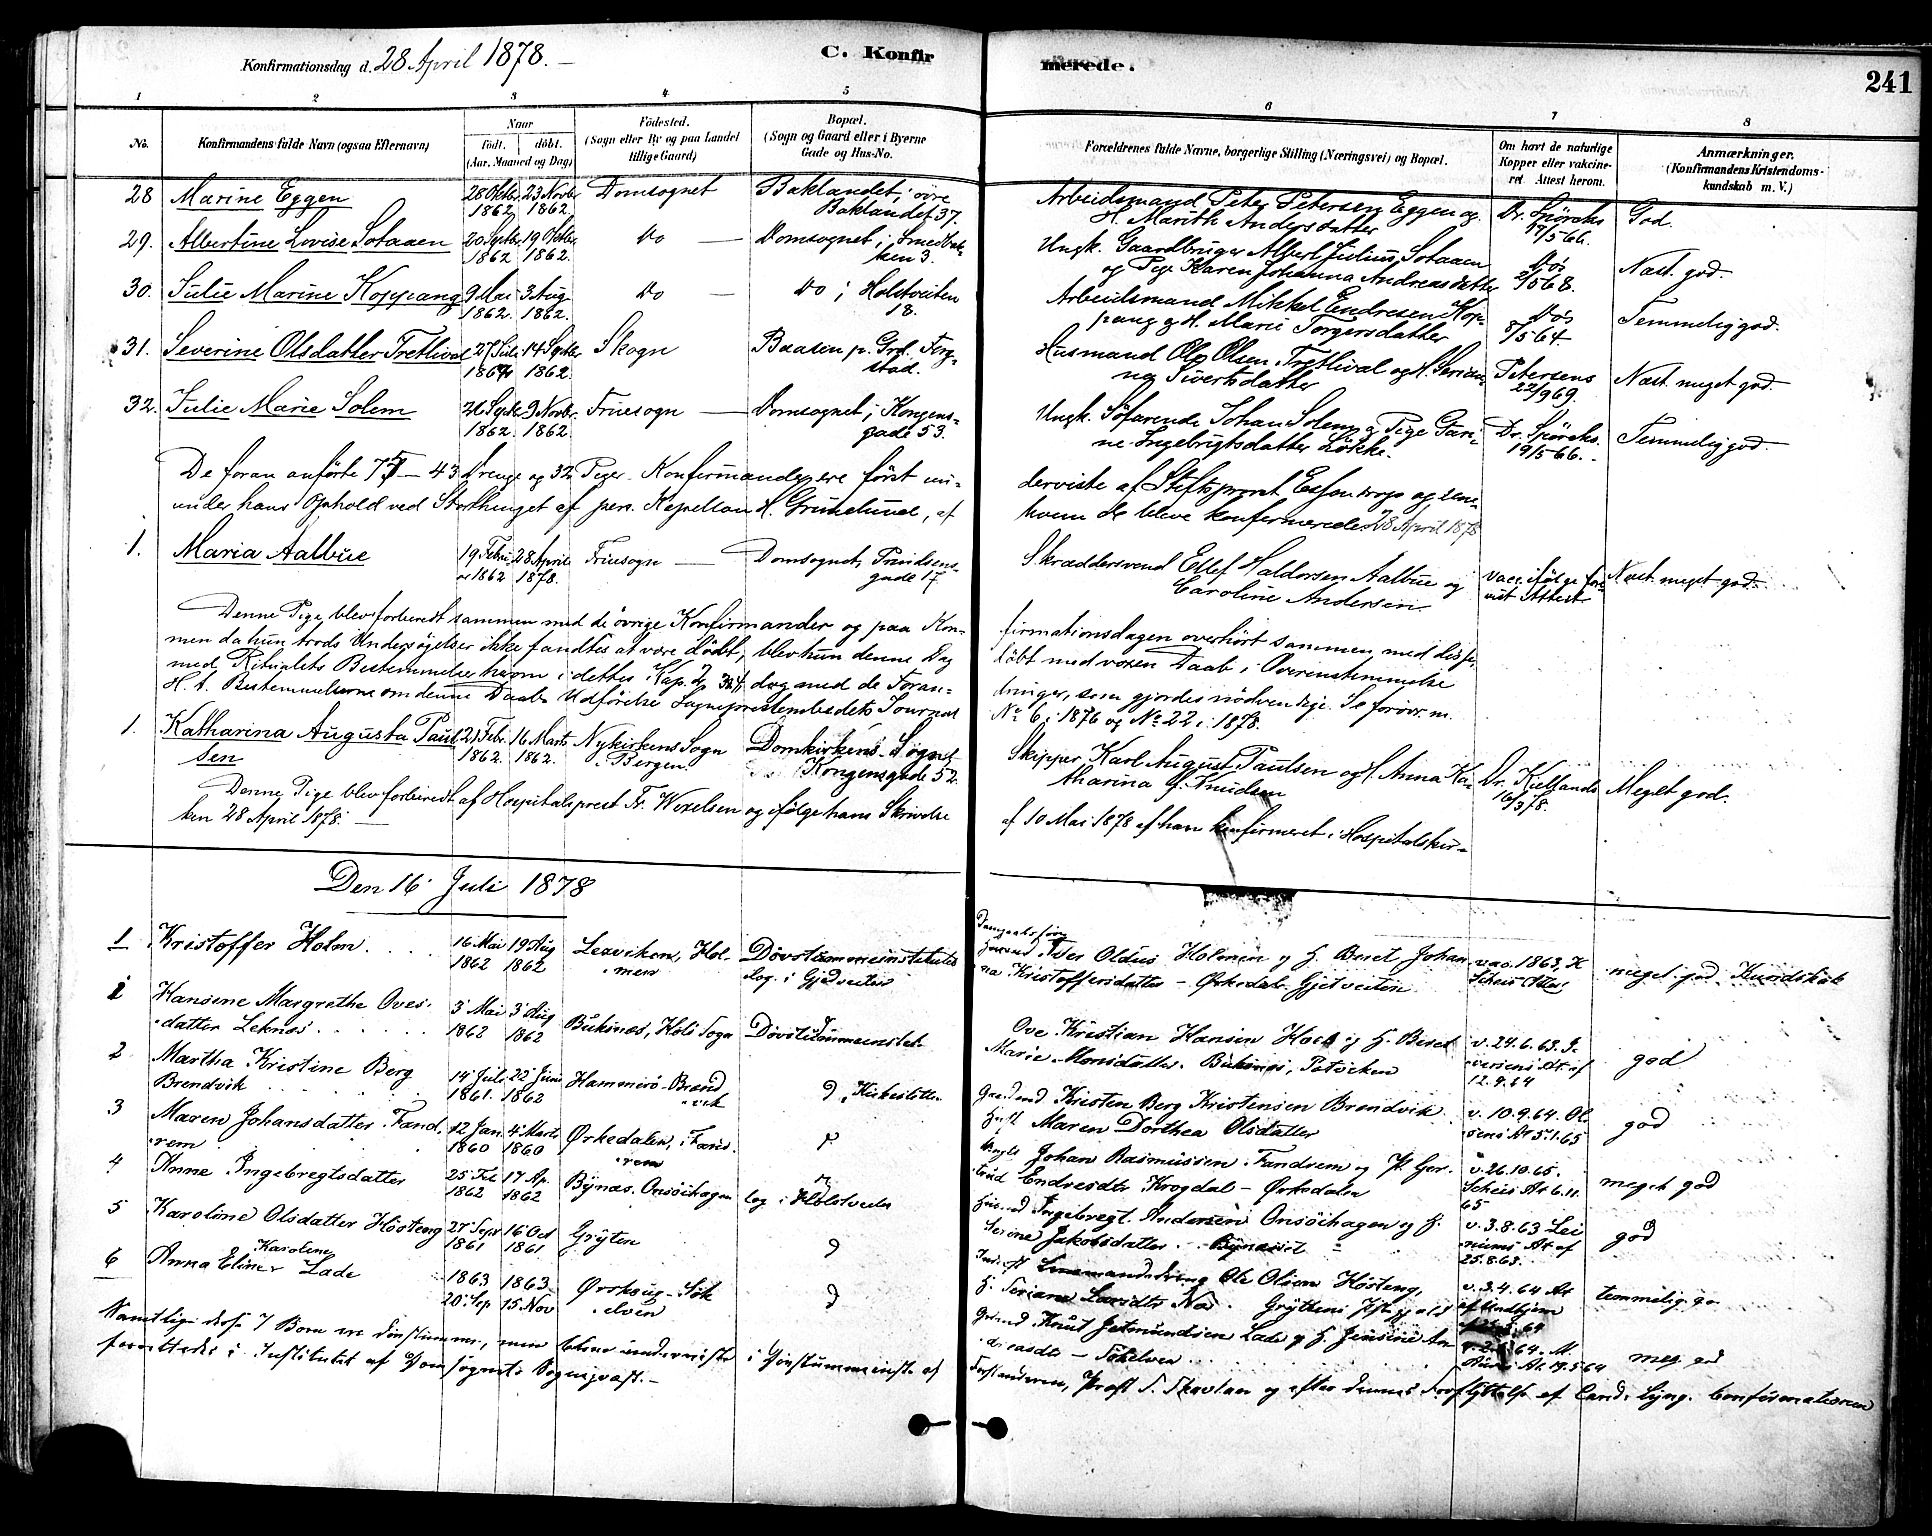 Konfirmationsdag d. 28 April 1878. C. Konfir
merede. 241
1 2 3 4 5 6 7 8
No. Konfirmandens fulde Navn (ogsaa Efternavn) Naar født. døbt. (Aar, Maaned og Dag) Födested. (Sogn eller By og paa Landet tillige Gaard) Bopæl. (Sogn og Gaard eller i Byerne Gade og Hus-No.
Forældrenes fulde Navne, borgerlige Stilling (Næringsvei) og Bopæl. Om havt de naturlige Kopper eller vakcineret. Attest herom. Anmærkninger. (Konfirmandens Kristendomskundskab m. V.)
28 Marine Eggen 28 Oktbr. 1862 23 Novbr. 1862 Domsognet Baklandet, øvre Baklandet 37. Arbeidsmand Peter Petersen Eggen og H. Marith Andersdatter Dr. Spörcks 17/5 66. God.
29. Albertine Lovise Sotaaen 20 Septbr. 1862 19 Octbr. 1862. Do — Domsognet i Smedbakken 3. Ungk. Gaardbruger Albert Julius Sotaaen og Pige Karen Johanna Andreasdatter Do 2/5 68. Næst. god.
30. Julie Marine Koppang 9 Mai 1862. 3 Aug. 1862. Do — Do i Holstveiten 18. Arbeidsmand Mikkel Endresen Koppang og H. Marie Torgersdatter Do 8/5 64. Temmelig god.
31. Severine Olsdatter Tretlival 27 Juli 1862 14 Septbr 1862. Skogn Baasen p. Grd. Fergstad. Husmand Ole Olsen Tretlival og H. Serianna Sivertsdatter Petersens 22/9 69. Næst. meget god.
32. Julie Marie Solem 21 Septbr. 1862. 9 Novbr. 1862. Fruesogn — Domsognet i Kongensgade 53. Ungk. Söfarende Johan Solem og Pige Garine Ingebrigtsdatter Løkke. Dr. Spörcks. 19/5 66. Temmelig god.
De foran anförte 75 — 43 Drenge og 32 Piger. Konfirmandere ere først underviste af Stiftsprovst Essendrop og sen-
under hans Ophold ved Storthinget af pers. Kapellan H. Grunelund, af hvem de bleve konfirmerede 28 April 1878
1. Maria Aalbue 19 Februar 1862 28 April 1878. Fruesogn — Domsognet, Prindsensgade 17 Skræddersvend Ellef Haldorsen Aalbue og Caroline Andersen Vacc. ifølge forevist Attest Næst. meget god.
Denne Pige blev forberedt sammen med de övrige Konfirmander og paa Konfirmationsdagen overhört sammen med disse,
men da hun trods Undersögelser ikke fandtes at være döbt, blev hun denne Dag döbt med voxen Daab i Overensstemmelse
med Ritualets Bestemmelse herom i dettes Kap. 2 § 4, dog med de Forandringer, som gjordes nödvendige. Se forövr. m.
H. t. Bestemmelserne om denne Daabs Udförelse Sognepræstembedets Journal No. 6 i 1876 og No. 22 i 1878.
1. Katharina Augusta Paulsen 21 Febr. 1862. 16 Marts 1862. Nykirkens Sogn i Bergen. Domkirkens Sogn Kongensgade 52. Skipper Karl August Paulsen og H. Anna Katharina f. Knudsen Dr. Kiellands 16/3 78. Meget god.
Denne Pige blev forberedt af Hospitalsprest Fr. Wexelsen og ifölge hans Skrivelse af 10 Mai 1878 af ham konfirmeret i Hospitalskir-
ken 28 April 1878. —
Den 16 Juli 1878
1 Kristoffer Holm. 16 Mai 1862 19 Aug 1862 Leaviken, Holmen Døvstummeinstitutet log. i Gjedveiten Iver Oldus Holmen og H. Beret Johanna Kristoffersdatter – Ørkedal. Gjetveiten vac. 1863, K Scheis Attest meget god Kundskab
1 Hansine Margrethe Ovesdatter Leknes. 3 Mai 1862 3 Aug 1862 Buksnes, Hols Sogn Døvstummeinstit. Ove Kristian Hansen Hoel og H. Beret Marie Monsdatter. Buksnes, v. 24.6.63. At af 12.9.64 god
2 Martha Kristine Berg Brendvik 14 Juli 1861. 22 Juni 1862 Hammerö - Brandvik Kristen Berg Kristensen Brendvik. Maren Dorthea Olsdatter v. 10.9.64. Olsens At 5.1.65 god
3 Maren Johansdatter Fandrem 12 Jan. 1860 4 Marts 1860 Ørkedalen, Fandrem Johan Rasmussen Fandrem og P. Gertrud Endresdtr Krogdal – Ørkedalen v. 26.10.65. Scheis At 6.11.65 meget god
4 Anne Ingebregtsdatter 25 Feb 1862 17 Ap. 1862 Bynæs. Onsöihagen log. i Ingebregt Andersen Onsöihagen og H. Serine Jakobsdatter. Bynæsset v. 3.8.63 At af 25.8.63. god
5 Karoline Olsdatter Hösteng 27 Sept 1861 16 Oct 1861 Gryten Ole Olsen Hösteng, H. Seriane Larsdtr v. 3.4.64 At temmelig go.
6 Anna Eline Karoline Lade 1863 20 Sep 1863 15 Nov Ørskoug - Knut Lade og H. Jensine M. At 19.5.64 meg. god
Samtlige disse 7 Børn ere døvstumme, men bleve underviste i Døvstummeinst. af Forstanderen, Provst S. og efter dennes af Cand. Lyng. Confirmationen
forrettedes i Institutet af Domsognets Sogneprest. —